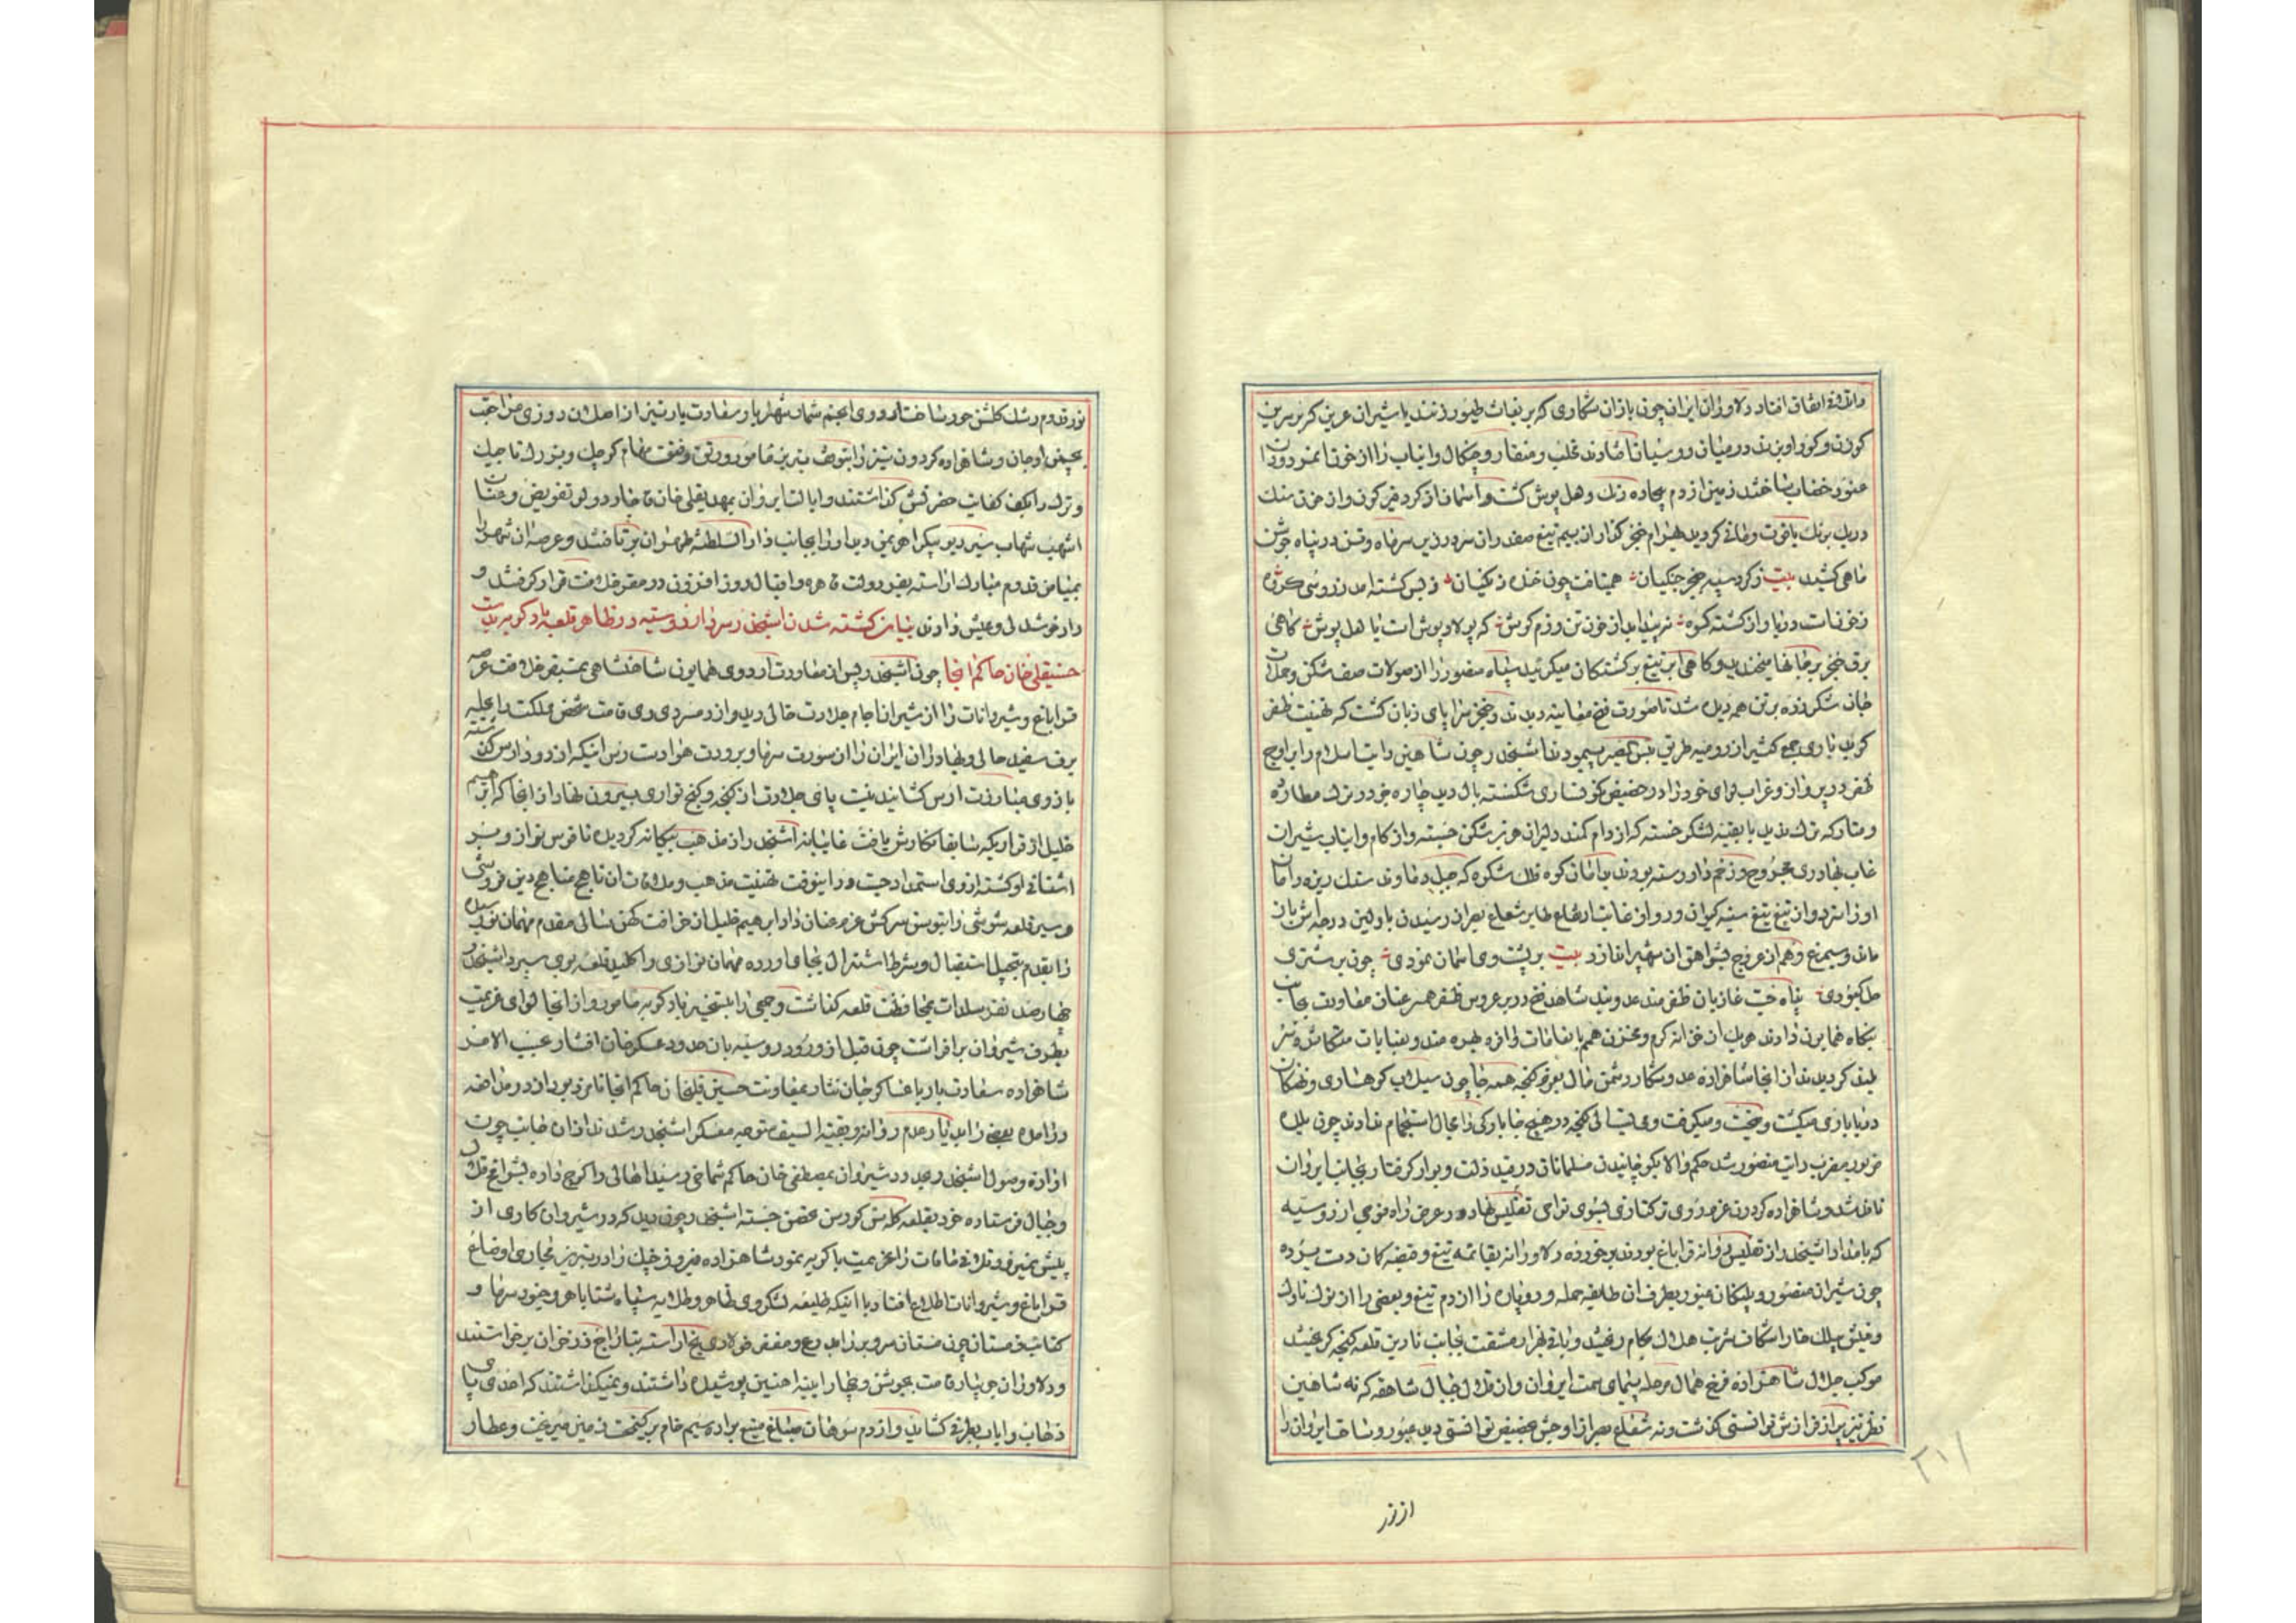 واتفاق افتاد دلاوران ایران چون بازان شکاری که بر بغاث طیور زنند یا شیران عرین که بر سرین
کوزن و کور اویزند در میان روسیان افتادند مخلب و منقار و چنکال و انیاب را از خون
خضاب ساختند زمین از دم بیجاده رنک و هل پوش کشت و اسمان از کرد قیرکون و از خون سنک
دریک برنک یاقوت رمانی کردید بهرام خنجر کذار از بیم تیغ صفدران سر در زین سر ماه و تن در پناه جوشن
ماهی کشید بیت ز کرد سیه خنجر جنکیان همتافت چون خنده زنکیان ز بس کشته امد ز روسی کروه
از کشته کوه از خون تن رزم کوش که پولادپوش است یا هل پوش کاهی
برق خنجر بر جانها میخندید و کاهی ابر تیغ بر کشتکان میکریید سپاه منصور را از صولات صف شکن و حملات
جان شکر زره بر تن همه دیده شد تا صورت فتح معاینه دیدند و خنجر سراپای زبان کشت که تهنیت ظفر
کوید باری جمعی کثیر از روسیه طریق بئس المصیر پیمودند اشپخدر چون شاهین رایت اسلام را بر اوج
ظفر در پرواز و غراب لوای خود را در حضیض کوفتاری شکسته بال دید چاره خود در ترک مطارده
و متارکه ترک دید با بقیه لشکر خسته که از دام کمند دلیران هزبر شکن جسته و از کام و انیاب شیران
غاب بهادری مجروح و زخم دار رسته بودند بدامان کوه فلک شکوه که جبل دماوند سنک ریزه دامان
او را و از تیغ تیغ سینه کیوان و از غایت ارتفاع طایر شعاع بصر از رسیدن باولین درجه اش باز
ماند و سیمرغ وهم از عروج شواهق ان شهپر اندازد بیت بر پشت وی اسمان نمودی چون بر شتری
جل کبودی پناه جست غازیان ظفرمند عدو بند شاهد فتح در بر عروس ظفر همسر عنان معاودت بجانب
بنکاه همایون دادند هر یک از خزانه کرم و مخزن همم بانعامات وافره بهره مند و بعنایات متکاثره سر
بلند کردیدند از انجا شاهزاده عدو شکار دشمن مال بعزم کنجه همه جا چون سیلاب کوهساری و نهنکان
دریاباری میکشت و میخست و میکرفت و می بست اهالی کنجه در هیچ جا بارکی را مجال استجمام ندادند چون بلده
مزبور مضرب رایت منصور شد حکم والا بکوچانیدن مسلمانان در قید ذلت و بوار کرفتار بجانب ایروان
نافذ شد و شاهزاده کردون عزم روی ترکتازی بسوی نواحی تفلیس نهاده در عرض راه فوجی از روسیه
که بامداد اشپخدر از تفلیس روانه قراباغ بودند برخورده دلاورانه بقایمه تیغ و قبضه کمان دست برده
چون شیران منصور و پلنکان غیور بطرف ان طایفه حمله ور و پاره را از دم تیغ و بعضی را از نوک ناوک
و فلیش پیلک خارا شکاف شربت هلاک بکام ریختند و باقی بهزار مشقت بجانب نارین قلعه کنجه کریختند
موکب جلال شاهزاده فرخ همال مرحله پیمای سمت ایروان و از تلال جبال شاهقه که نه شاهین
نظر تیزپر از فرازش توانستی کذشت و نه شعاع بصر از اوجش حضیض توانستی دید عبور و ساحت ایروان را
از نور
نور قدوم رشک کلشن حور ساخت اردوی انجم شمار شهریار سعادت یار نیز از اصلاندوزی مراجعت
بچمن اوجان و شاهزاده کردون تیز را بتوقف تبریز مامور و رتق و فتق مهام کوچک و بزرک تاجیک
و ترک را بکف کفایت حضرتش کذاشتند و ایالت ایروان بمهدیقلی خان قاجار دولو تفویض و عنان
اشهب شهاب سیر دیو پیکر اهرمن دیدار را بجانب دار السلطنه طهران برتافتند و عرصه ان شهر را
بمیامن قدوم مبارک اراسته بفر دولت قاهره و اقبال روز افزون در مقر خلافت قرار کرفتند و
داد خوشدلی و عیش دادند بیان کشته شدن اشپخدر سردار روسیه در ظاهر قلعه بادکوبه بدست
حسینقلی خان حاکم انجا چون اشپخدر پس از معاودت اردوی همایون شاهنشاهی بمستقر خلافت عرصه
قراباغ و شیروانات را از شیران اجام جلادت خالی دید و از دمسردی دی قامت شخص مملکت را بحلیه
برف سفید حالی و بهادران ایران را از سورت سرما و برودت هوا دست رس اینکه از رود ارس کذشته
بازوی مبارزت از هم کشایند نیست پای جلادت از کنجه و کنج تواری بیرون نهاد از انجا که ابرهیم
خلیل از قراریکه سابقا نکارش یافت غایبانه اشپخدر را از مذهب بیکانه کردیده ناقوس نواز و سر
اشفاقی او کشته از وی استمداد جست و در اینوقت تهنیت مذهب و ملاقات ان ناهج مناهج دین فروشی
و سیر قلعه شوشی را بتوسن سرکش عزم عنان داد ابرهیم خلیل از خرافت کهن سالی مقدم مهمان نورسیده
را بقدم تعجیل استقبال و شرط استنزال بجای اورده مهمان نوازی و اکلید قلعه بوی سپرد اشپخدر
چهارصد نفر سلدات بمحافظت قلعه کذاشت و جمعی را بتسخیر بادکوبه مامور و از انجا لوای عزیمت
بطرف شیروان برافراشت چون قبل از ورود روسیه بان حدود عسکرخان افشار عسب الامر
شاهزاده سعادت یار با عساکر جان نثار بمعاونت حسین قلیخان حاکم انجا نامزد بود از در مدافعه
درامده بعضی را بدیار عدم روانه و بقیة السیف متوجه معسکر اشپخدر شدند از ان جانب چون
اوازه وصول اشپخدر و عبور در شیروان بمصطفی خان حاکم شماخی رسید اهالی را کوچ داده بشواهق تلال
و جبال فرستاده خود بقلعه کله سن کورسن تحصن جسته اشپخدر چون دید که در شیروان کاری از
پیش نمیرود تلافی مافات را عزیمت باکویه نمود شاهزاده فیروز جنک را در تبریز مجاری اوضاع
قراباغ و شیروانات اطلاع افتاد با اینکه طلیعه لشکر وی ظاهر و طلایه سپاه شتا باهر و جنود سرما و
کتایب زمستان چون مستان سر و بر را بدرع و مغفر فولادی یخ اراسته بتاراج زر خزان برخواستند
و دلاوران جویبار قامت بجوشن و بحار ابنیه اهنین پوشیده داشتند و نمیکذاشتند که احدی پای
ذهاب و ایاب بطرفی کشاید و از دم سوهان صباغ میغ براده سیم خام بر کیمخت زمین میریخت و عطار